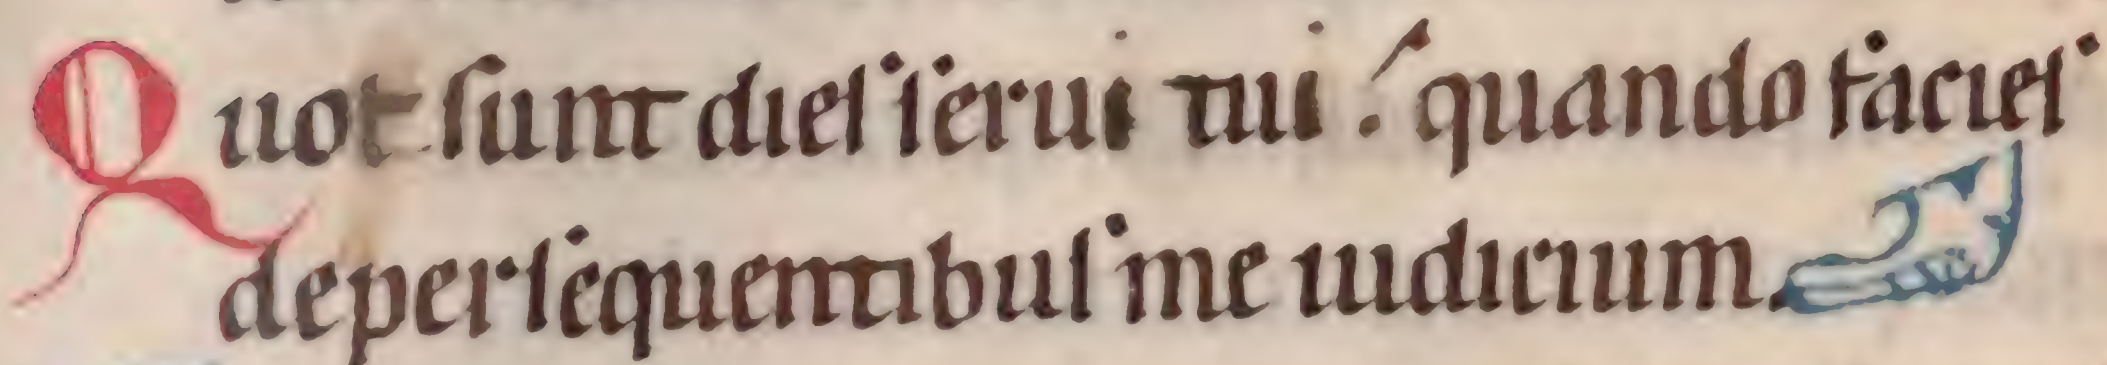 Quot ſunt dieſ ſerui tui : quando facieſ
de perſequentibuſ me iudicium.